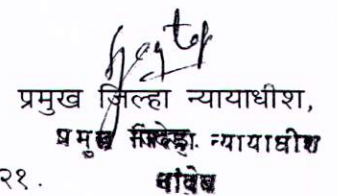 प्रमुख जिल्हा न्यायाधीश,
प्रमुख जिल्हा न्यायाधीश
२१.